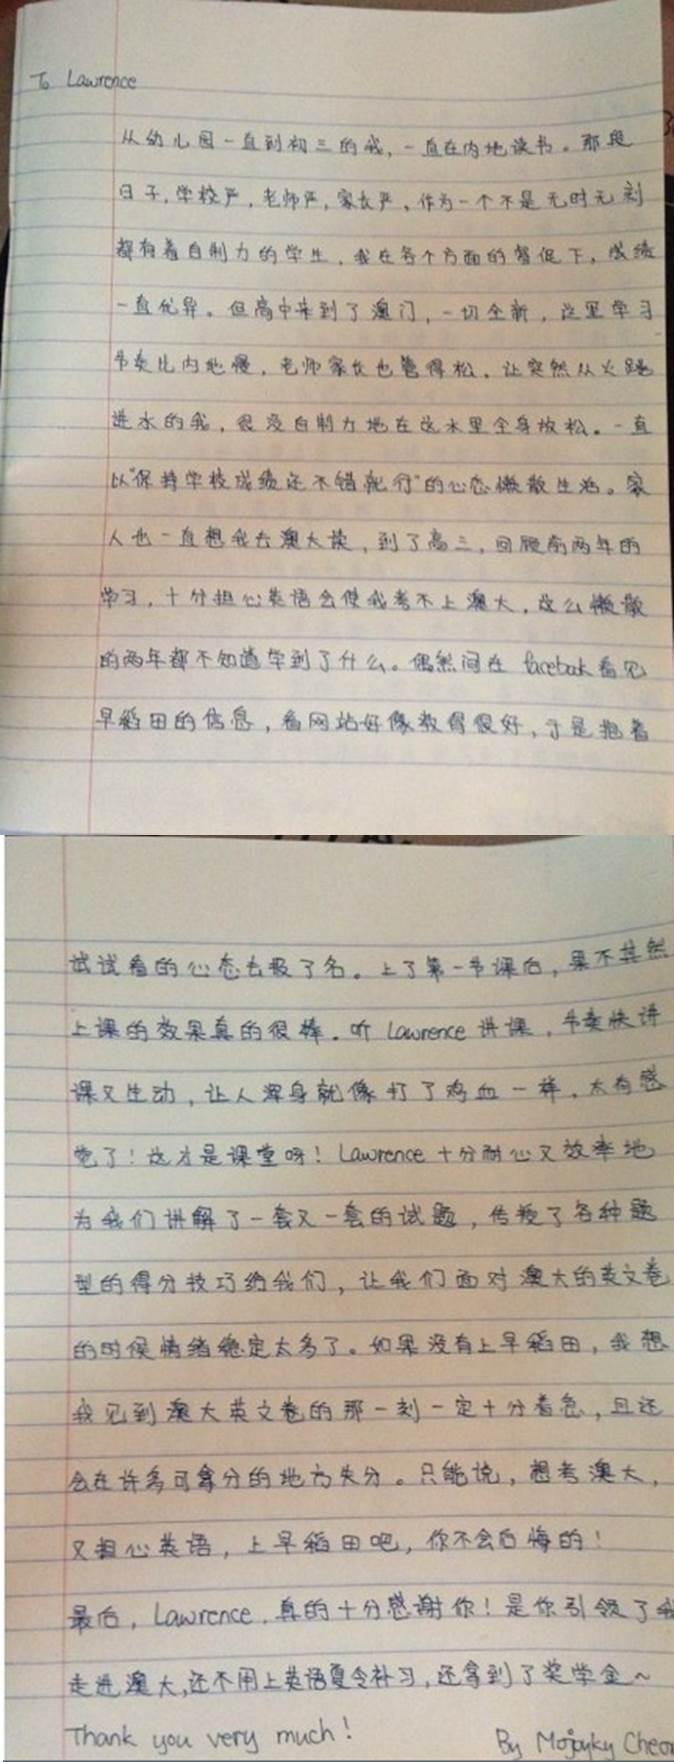 To Lawrence
从幼儿园一直到初三的我，一直在内地读书。那段
日子，学校严，老师严，家长严，作为一个不是无时无刻
都有着自制力的学生，我在各个方面的督促下，成绩
一直优异。但高中来到了澳门，一切全新，这里学习
节奏比内地慢，老师家长也管得松，让突然从火踢
进水的我，很没自制力地在这水里全身放松。一直
以“保持学校成绩还不错就行”的心态懒散生活。家
人也一直想我去澳大读，到了高三，回顾前两年的
学习，十分担心英语会使我考不上澳大，这么懒散
的两年都不知道学到了什么。偶然间在 facebook 看见
早稻田的信息，看网站好像教得很好，于是抱着
试试看的心态去报了名。上了第一节课后，果不其然
上课的效果真的很棒。听 Lawrence 讲课，节奏快讲
课又生动，让人浑身就像打了鸡血一样。太有感
觉了！这才是课堂呀！Lawrence 十分耐心又效率地
为我们讲解了一套又一套的试题，传授了各种题
型的得分技巧给我们，让我们面对澳大的英文卷
的时候情绪稳定太多了。如果没有上早稻田，我想
我见到澳大英文卷的那一刻一定十分着急，且还
会在许多可拿分的地方失分。只能说，想考澳大，
又担心英语，上早稻田吧，你不会后悔的！
最后，Lawrence，真的十分感谢你！是你引领了我
走进澳大，还不用上英语夏令补习，还拿到了奖学金～
Thank you very much!
By Mojouky